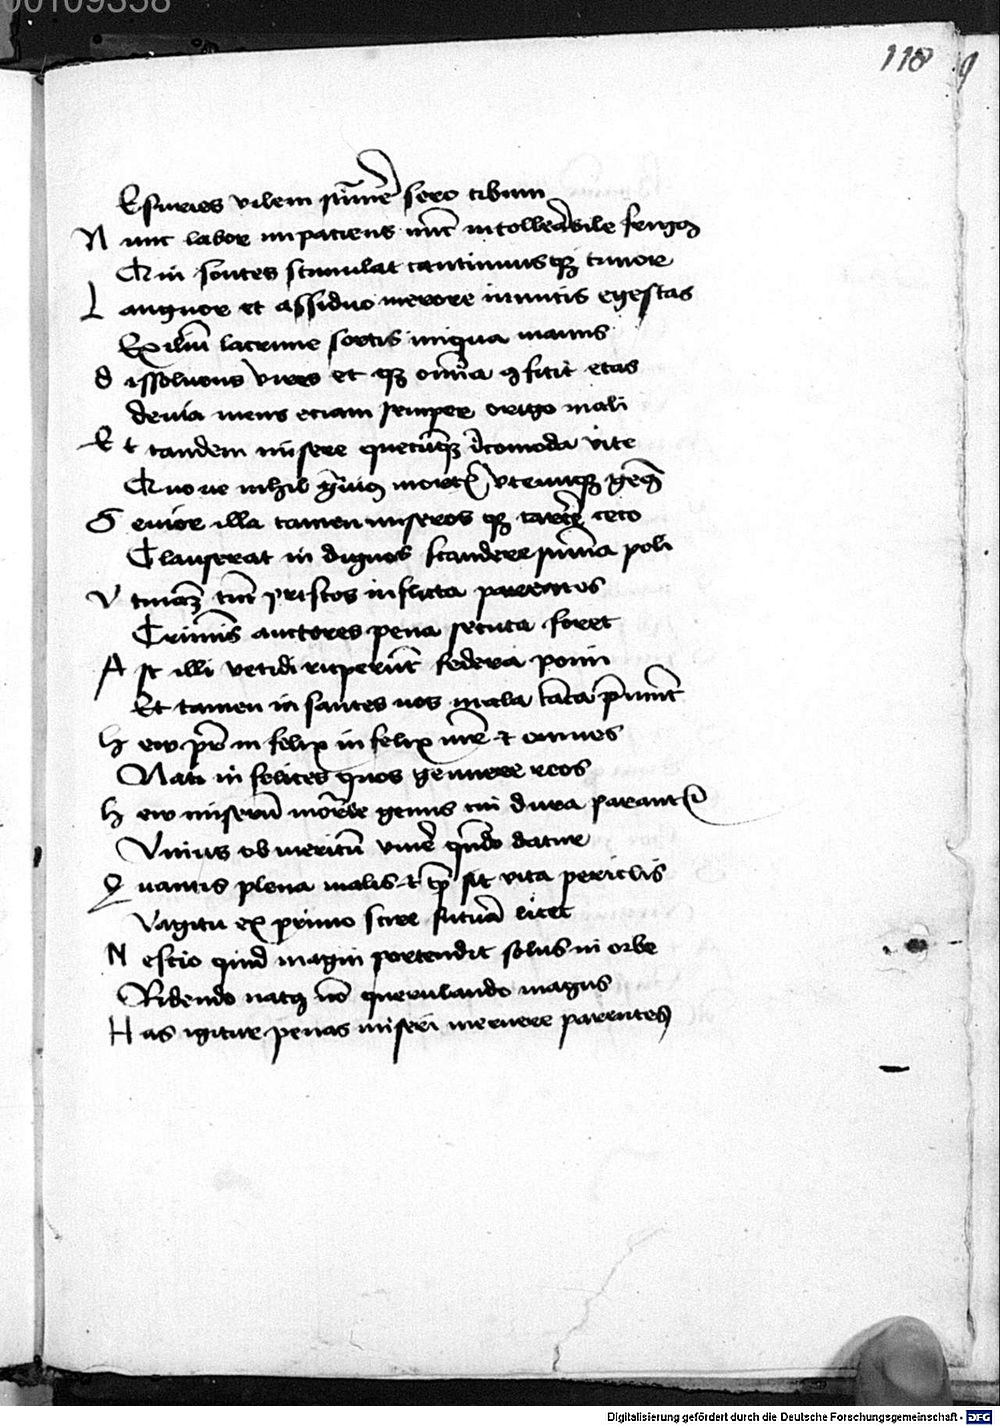 00109358
118
Esuries vilem sumere sero cibum
N unc labor inpaciens nunc intollerabile frigus
Qui sontes stimulat cantinuusque timor
L anguor et assiduo merore inmitis egestas
Exilium lacrime sortis iniqua manus
d issoluens vires et que omnia conficit etas
deuia mens eciam semper origo mali
E t tandem misere quecumque incomoda vite
Quo ue nihil grauius mortis utrumque genus
S euior illa tamen miseros que carcere ceco
Clauserat in dignos scandere summa poli
V tinam tunc priscos inflicta parentes
Criminis auctores pena secuta foret
A st illi vetiti ruperunt federa pomi
Et tamen in santes nos mala tanta premunt
h eu pater in felix in felix mater et omnes
Nati in felices quos genuere reos
h eu miserum mortale genus cui dura parantur
Vnius ob meritum viuere quando datur
Q uantis plena malis et tantis sit vita periclis
Vagitu ex primo scire futura licet
N escio quid magni portendit solus in orbe
Ridendo natus non querulando magus
H as igitur penas miseri meruere parentes
Digitalisierung gefördert durch die Deutsche Forschungsgemeinschaft - DFG